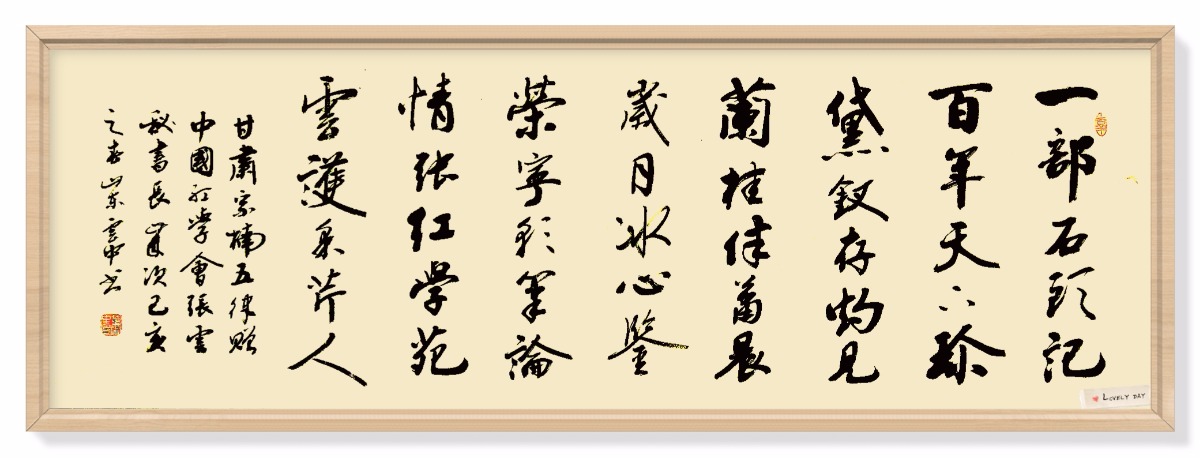 一部石頭記
百年天下珍
黛釵存灼見
蘭桂
歲月冰心鑒
榮寧彩筆論
情张红學苑
雲護采芹人
甘肅宗楠五律贈
中國红學會張雲
秘書長歲次己亥
之春
LOVELY DAY